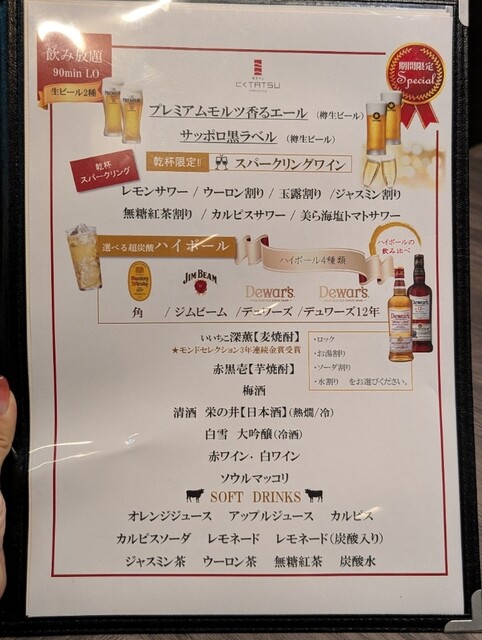 飲み放題
90min LO
生ビール2種
にくTATSU
期間限定
Special
プレミアムモルツ香るエール（樽生ビール）
サッポロ黒ラベル（樽生ビール）
乾杯
スパークリング
乾杯限定!! スパークリングワイン
レモンサワー / ウーロン割り / 玉露割り /ジャスミン割り
無糖紅茶割り / カルピスサワー / 美ら海塩トマトサワー
選べる超炭酸ハイボール
ハイボール4種類
ハイボールの
飲み比べ
JIM BEAM
Dewar's
Dewar's
角 / ジムビーム / デュワーズ / デュワーズ12年
いいちこ深薫【麦焼酎】
★モンドセレクション3年連続金賞受賞
赤黒壱【芋焼酎】
・ロック
・お湯割り
・ソーダ割り
・水割り をお選びください。
梅酒
清酒 栄の井【日本酒】(熱燗/冷)
白雪 大吟醸(冷酒)
赤ワイン・白ワイン
ソウルマッコリ
SOFT DRINKS
オレンジジュース アップルジュース カルピス
カルピスソーダ レモネード レモネード(炭酸入り)
ジャスミン茶 ウーロン茶 無糖紅茶 炭酸水